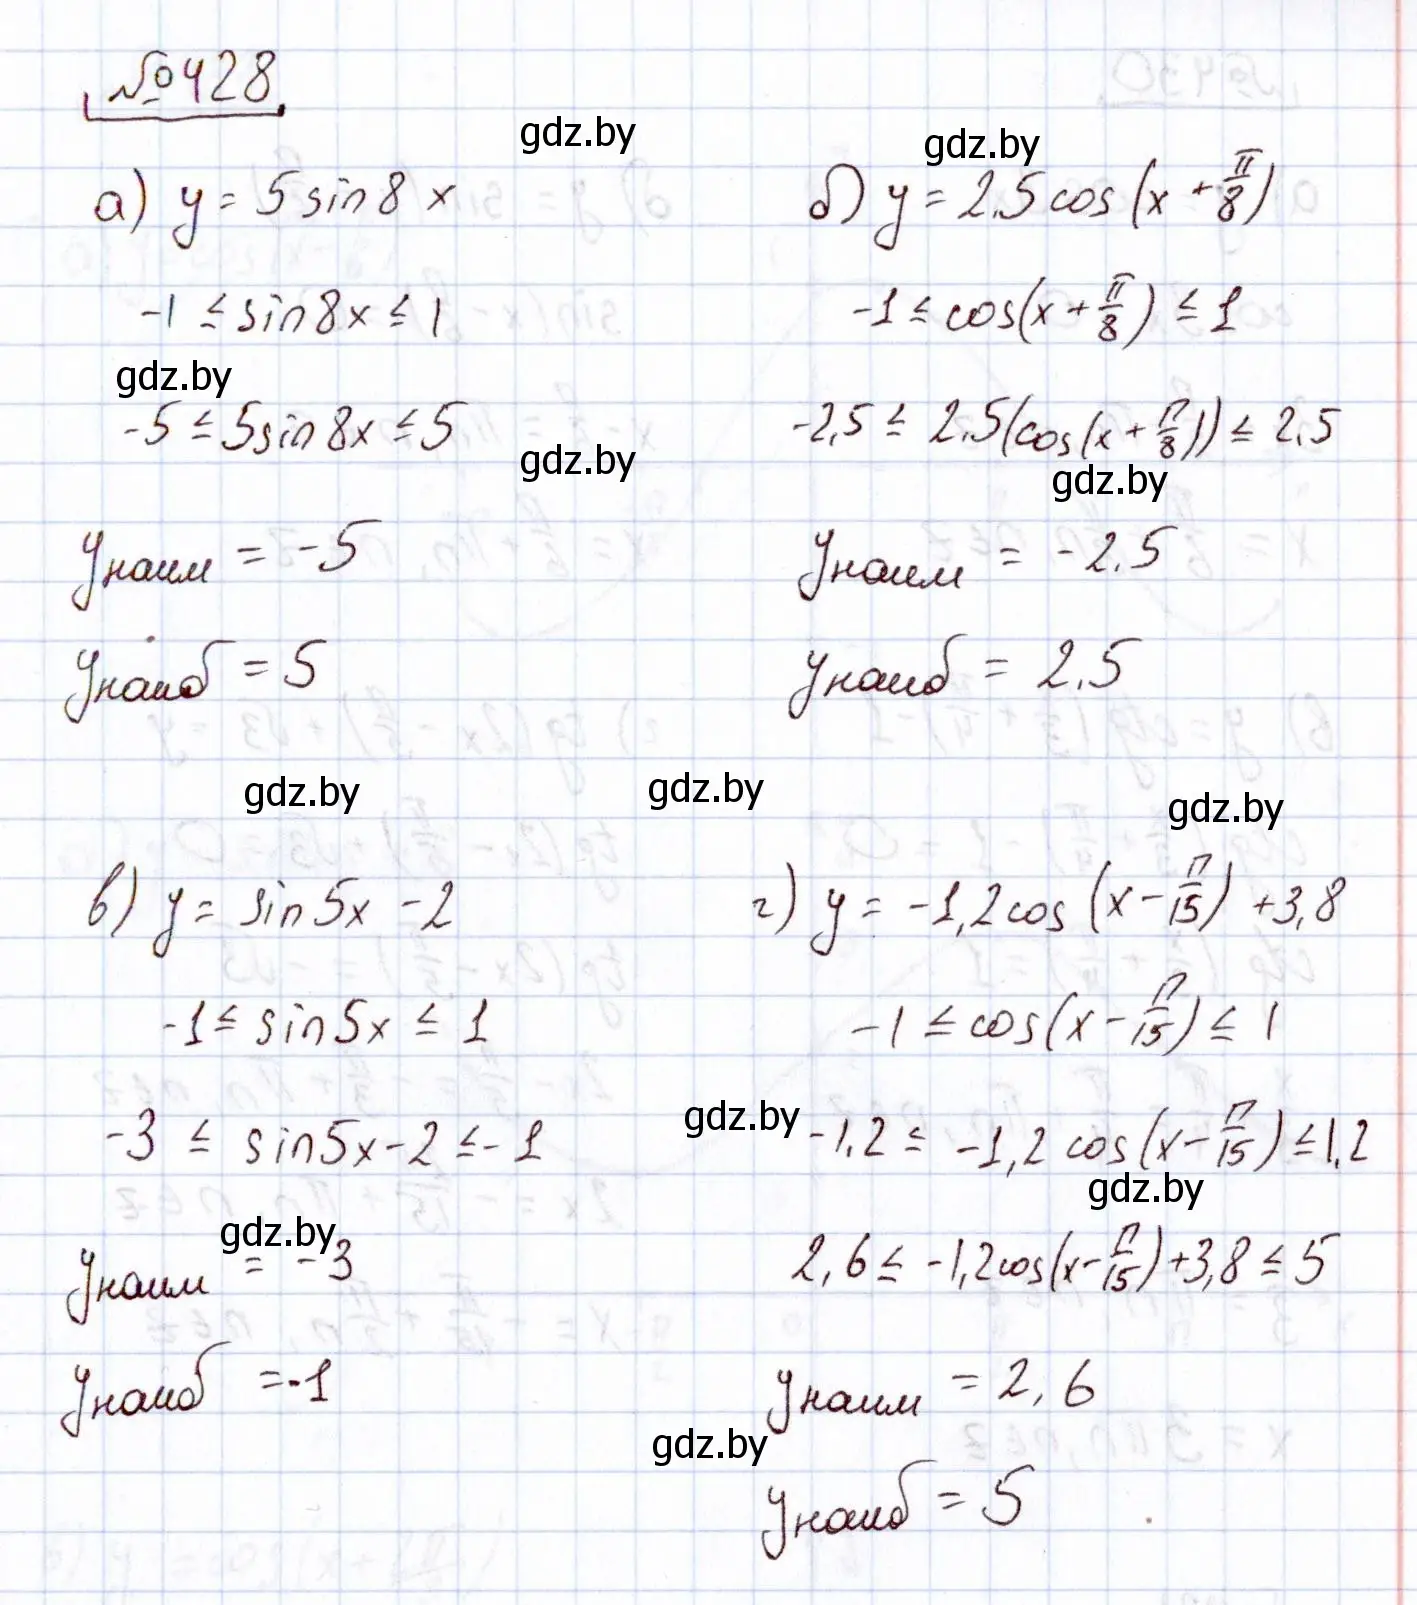 №428
gdz.by
gdz.by
а) y = 5 sin 8x
-1 ≤ sin8x ≤ 1
gdz.by
-5 ≤ 5sin8x ≤ 5
gdz.by
yнаим = -5
yнаиб = 5
б) y = 2.5 cos (x + π/8)
-1 ≤ cos(x + π/8) ≤ 1
-2,5 ≤ 2.5(cos(x + π/8)) ≤ 2,5
gdz.by
yнаим = -2.5
yнаиб = 2.5
gdz.by
gdz.by
gdz.by
в) y = sin5x - 2
-1 ≤ sin5x ≤ 1
-3 ≤ sin5x - 2 ≤ -1
gdz.by
yнаим = -3
yнаиб = -1
г) y = -1,2cos (x - π/15) + 3,8
-1 ≤ cos(x - π/15) ≤ 1
gdz.by
-1,2 ≤ -1,2 cos(x - π/15) ≤ 1,2
gdz.by
2,6 ≤ -1,2cos(x - π/15) + 3,8 ≤ 5
yнаим = 2,6
gdz.by
yнаиб = 5